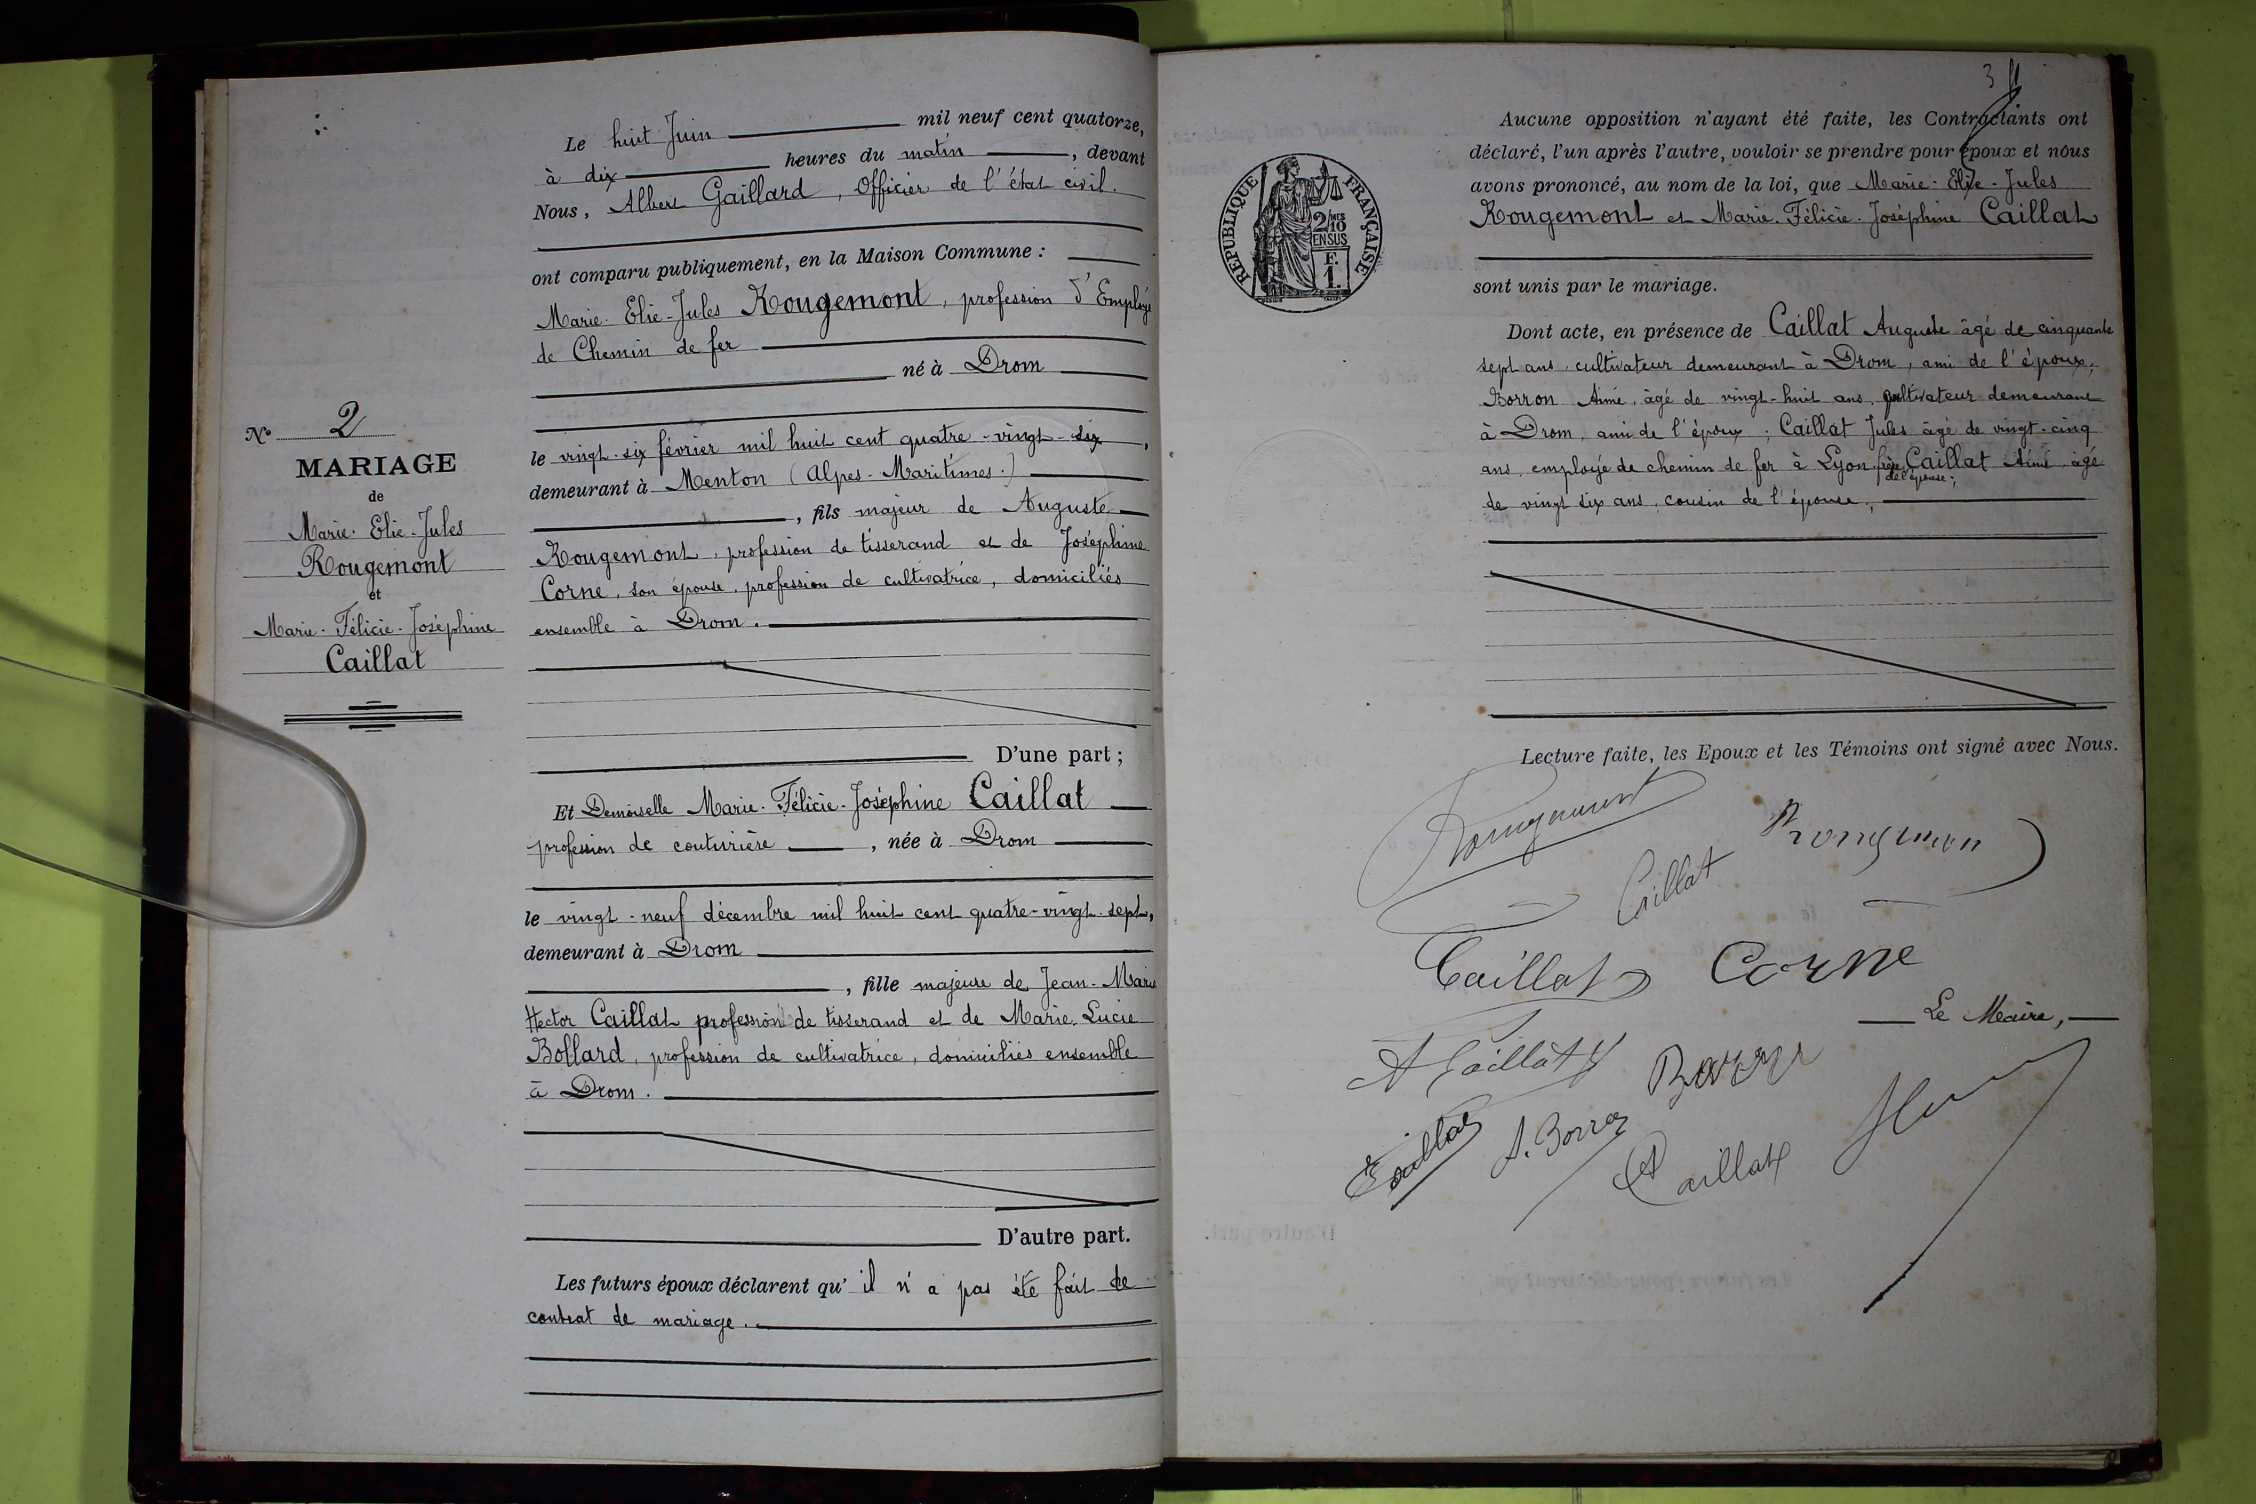 Le huit Juin mil neuf cent quatorze,
à dix heures du matin, devant
Nous, Albert Gaillard, Officier de l'état civil.
ont comparu publiquement, en la Maison Commune :
Marie-Elie-Jules Rougemont, profession d'Employé
de Chemin de fer
né à Drom
le vingt-six février mil huit cent quatre-vingt-six,
demeurant à Menton (Alpes-Maritimes.)
, fils majeur de Auguste
Rougemont, profession de tisserand et de Joséphine
Corne, son épouse, profession de cultivatrice, domiciliés
ensemble à Drom.
D'une part ;
Et Demoiselle Marie-Félicie-Joséphine Caillat
profession de couturière, née à Drom
le vingt-neuf décembre mil huit cent quatre-vingt-sept,
demeurant à Drom
, fille majeure de Jean-Marie
Hector Caillat profession de tisserand et de Marie-Lucie
Bollard, profession de cultivatrice, domiciliés ensemble
à Drom.
D'autre part.
Les futurs époux déclarent qu'il n'a pas été fait de
contrat de mariage.
N° 2
MARIAGE
de
Marie-Elie-Jules
Rougemont
et
Marie-Félicie-Joséphine
Caillat
3
RÉPUBLIQUE FRANÇAISE
2/10
EN SUS
F.
1.
Aucune opposition n'ayant été faite, les Contractants ont
déclaré, l'un après l'autre, vouloir se prendre pour époux et nous
avons prononcé, au nom de la loi, que Marie-Elie-Jules
Rougemont et Marie-Félicie-Joséphine Caillat
sont unis par le mariage.
Dont acte, en présence de Caillat Auguste âgé de cinquante
sept ans, cultivateur demeurant à Drom, ami de l'époux,
Borron Aimé, âgé de vingt-huit ans, cultivateur demeurant
à Drom, ami de l'époux ; Caillat Jules âgé de vingt-cinq
ans, employé de chemin de fer à Lyon, frère Caillat Aimé âgé
de l'épouse ;
de vingt six ans, cousin de l'épouse,
Lecture faite, les Epoux et les Témoins ont signé avec Nous.
Rougemont
Caillat
Caillat Corne
Le Maire,
A Caillat
Caillat A. Borron
Caillat